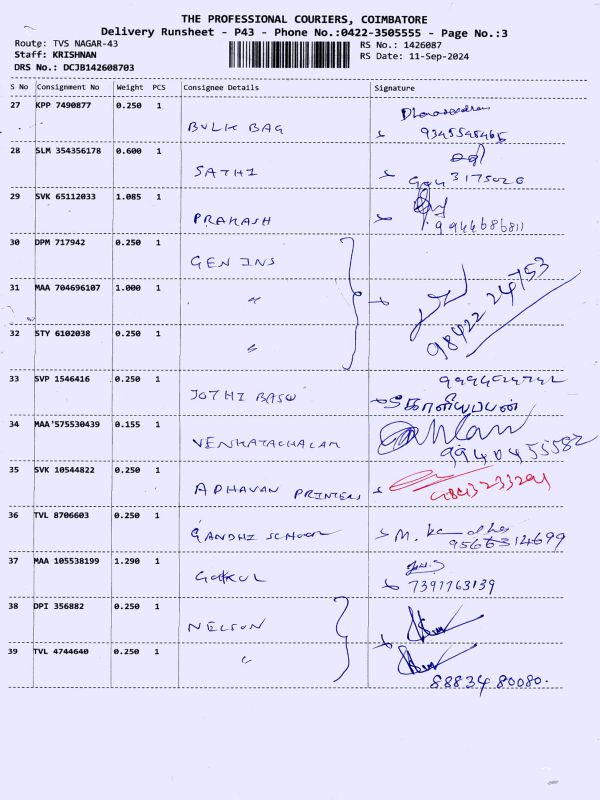 THE PROFESSIONAL COURIERS, COIMBATORE
Delivery Runsheet - P43 - Phone No.:0422-3505555 - Page No.:3
Route: TVS NAGAR-43 RS No.: 1426087
Staff: KRISHNAN RS Date: 11-Sep-2024
DRS No.: DCJB142608703
S No Consignment No Weight PCS Consignee Details Signature
27 KPP 7490877 0.250 1
BULK BAG
28 SLM 354356178 0.600 1
SATHI
29 SVK 65112033 1.085 1
PRAKASH 9944686811
30 DPM 717942 0.250 1
GEN INS
31 MAA 704696107 1.000 1
"
98422 24753
32 STY 6102038 0.250 1
"
33 SVP 1546416 0.250 1
JOTHI BASU காளியப்பன்
34 MAA'575530439 0.155 1
VENKATACHALAM 9940455582
35 SVK 10544822 0.250 1
ADHAVAN PRINTERS
36 TVL 8706603 0.250 1
GANDHI SCHOOL M.
37 MAA 105538199 1.290 1
GOKUL 7391763139
38 DPI 356882 0.250 1
NELSON
39 TVL 4744640 0.250 1
"
88834 80080.